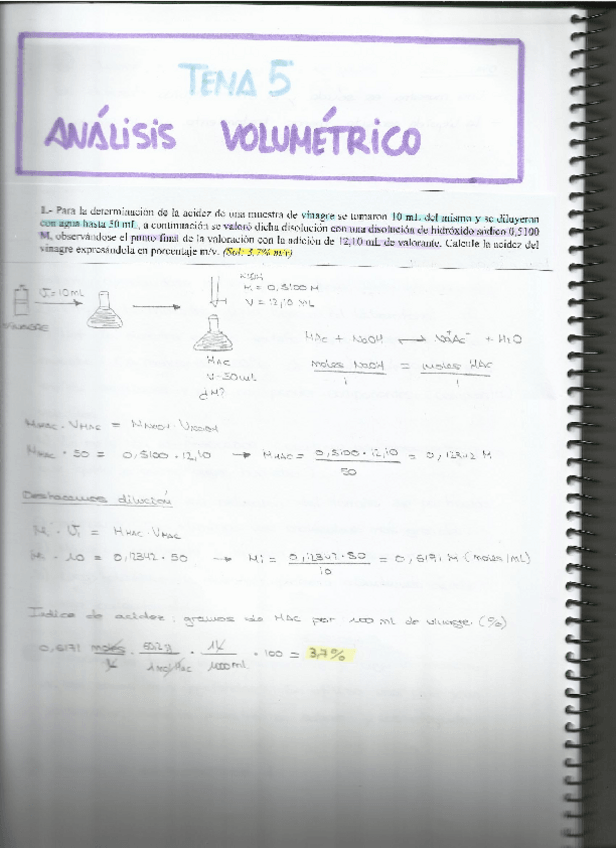 TEMA 5
ANÁLISIS VOLUMÉTRICO
1.- Para la determinación de la acidez de una muestra de vinagre se tomaron 10 mL del mismo y se diluyeron
con agua hasta 50 mL, a continuación se valoró dicha disolución con una disolución de hidróxido sódico 0,5100
M, observándose el punto final de la valoración con la adición de 12,10 mL de valorante. Calcule la acidez del
vinagre expresándola en porcentaje m/v. (Sol: 3,7% m/v)
V=10mL
VINAGRE
M = 0,5100 M
V = 12,10 mL
HAc
V=50mL
¿M?
HAc + NaOH ⟶ Na⁺Ac⁻ + H2O
moles NaOH / 1 = moles HAc / 1
M HAc · V HAc = M NaOH · V NaOH
M HAc · 50 = 0,5100 · 12,10 → M HAc = 0,5100 · 12,10 / 50 = 0,12342 M
Deshacamos dilución
Mi · Vi = M HAc · V HAc
Mi · 10 = 0,12342 · 50 → Mi = 0,12342 · 50 / 10 = 0,6171 M (moles/mL)
Índice de acidez: gramos de HAc por 100 mL de vinagre. (%)
0,6171 moles / L · g / 1 mol HAc · 1L / 1000mL · 100 = 3,7%